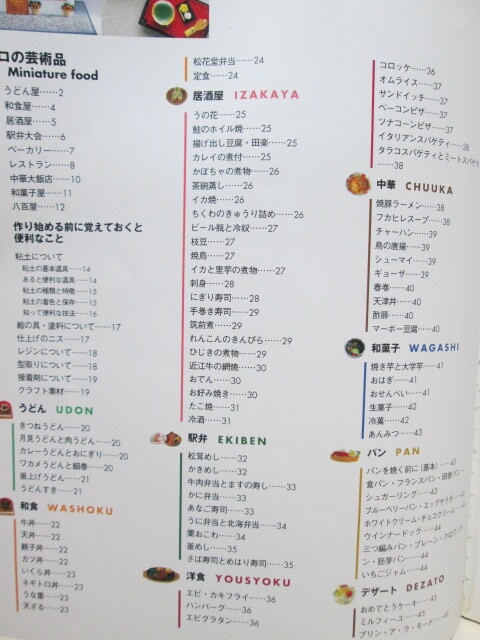 ロの芸術品
Miniature food
うどん屋……2
和食屋……4
居酒屋……5
駅弁大会……6
ベーカリー……7
レストラン……8
中華大飯店……10
和菓子屋……11
八百屋……12
作り始める前に覚えておくと
便利なこと
粘土について
粘土の基本道具……14
あると便利な道具……14
粘土の種類と特徴……15
粘土の着色と保存……15
知って便利な技法……16
絵の具・塗料について……17
仕上げのニス……17
レジンについて……18
型取りについて……18
接着剤について……19
クラフト素材……19
うどん UDON
きつねうどん……20
月見うどんと肉うどん……20
カレーうどんとおにぎり……20
ワカメうどんと細巻……20
釜上げうどん……21
うどんすき……21
和食 WASHOKU
牛丼……22
天丼……22
親子丼……22
カツ丼……22
いくら丼……23
ネギトロ丼……23
うな重……23
天ざる……23
松花堂弁当……24
定食……24
居酒屋 IZAKAYA
うの花……25
鮭のホイル焼……25
揚げ出し豆腐・田楽……25
カレイの煮付……25
かぼちゃの煮物……26
茶碗蒸し……26
イカ焼……26
ちくわのきゅうり詰め……26
ビール瓶と冷奴……27
枝豆……27
焼鳥……27
イカと里芋の煮物……27
刺身……28
にぎり寿司……28
手巻き寿司……29
筑前煮……29
れんこんのきんぴら……29
ひじきの煮物……29
近江牛の網焼……30
おでん……30
お好み焼き……30
たこ焼……31
冷酒……31
駅弁 EKIBEN
松茸めし……32
かきめし……32
牛肉弁当とますの寿し……33
かに弁当……33
あなご寿司……33
うに弁当と北海弁当……34
栗おこわ……34
釜めし……35
さば寿司とめはり寿司……35
洋食 YOUSYOKU
エビ・カキフライ……36
ハンバーグ……36
エビグラタン……36
コロッケ……36
オムライス……37
サンドイッチ……37
ベーコンピザ……37
ツナコーンピザ……37
イタリアンスパゲティ……38
タラコスパゲティとミートスパゲティ
……38
中華 CHUUKA
焼豚ラーメン……38
フカヒレスープ……38
チャーハン……39
鳥の唐揚……39
シューマイ……39
ギョーザ……39
春巻……40
天津丼……40
酢豚……40
マーボー豆腐……40
和菓子 WAGASHI
焼き芋と大学芋……41
おはぎ……41
おせんべい……41
生菓子……42
冷菓……42
あんみつ……43
パン PAN
パンを焼く前に[基本]……43
食パン・フランスパン・田舎パン
シュガーリング……43
ブルーベリーパン・エッグサラダ
ホワイトクリーム・チョコクリーム
ウインナードッグ……44
三つ編みパン・プレーン・クロワッサ
ン・胚芽パン……44
いちごジャム……44
デザート DEZATO
おめでとうケーキ……45
ミルフィーユ……45
プリン・ア・ラ・モード